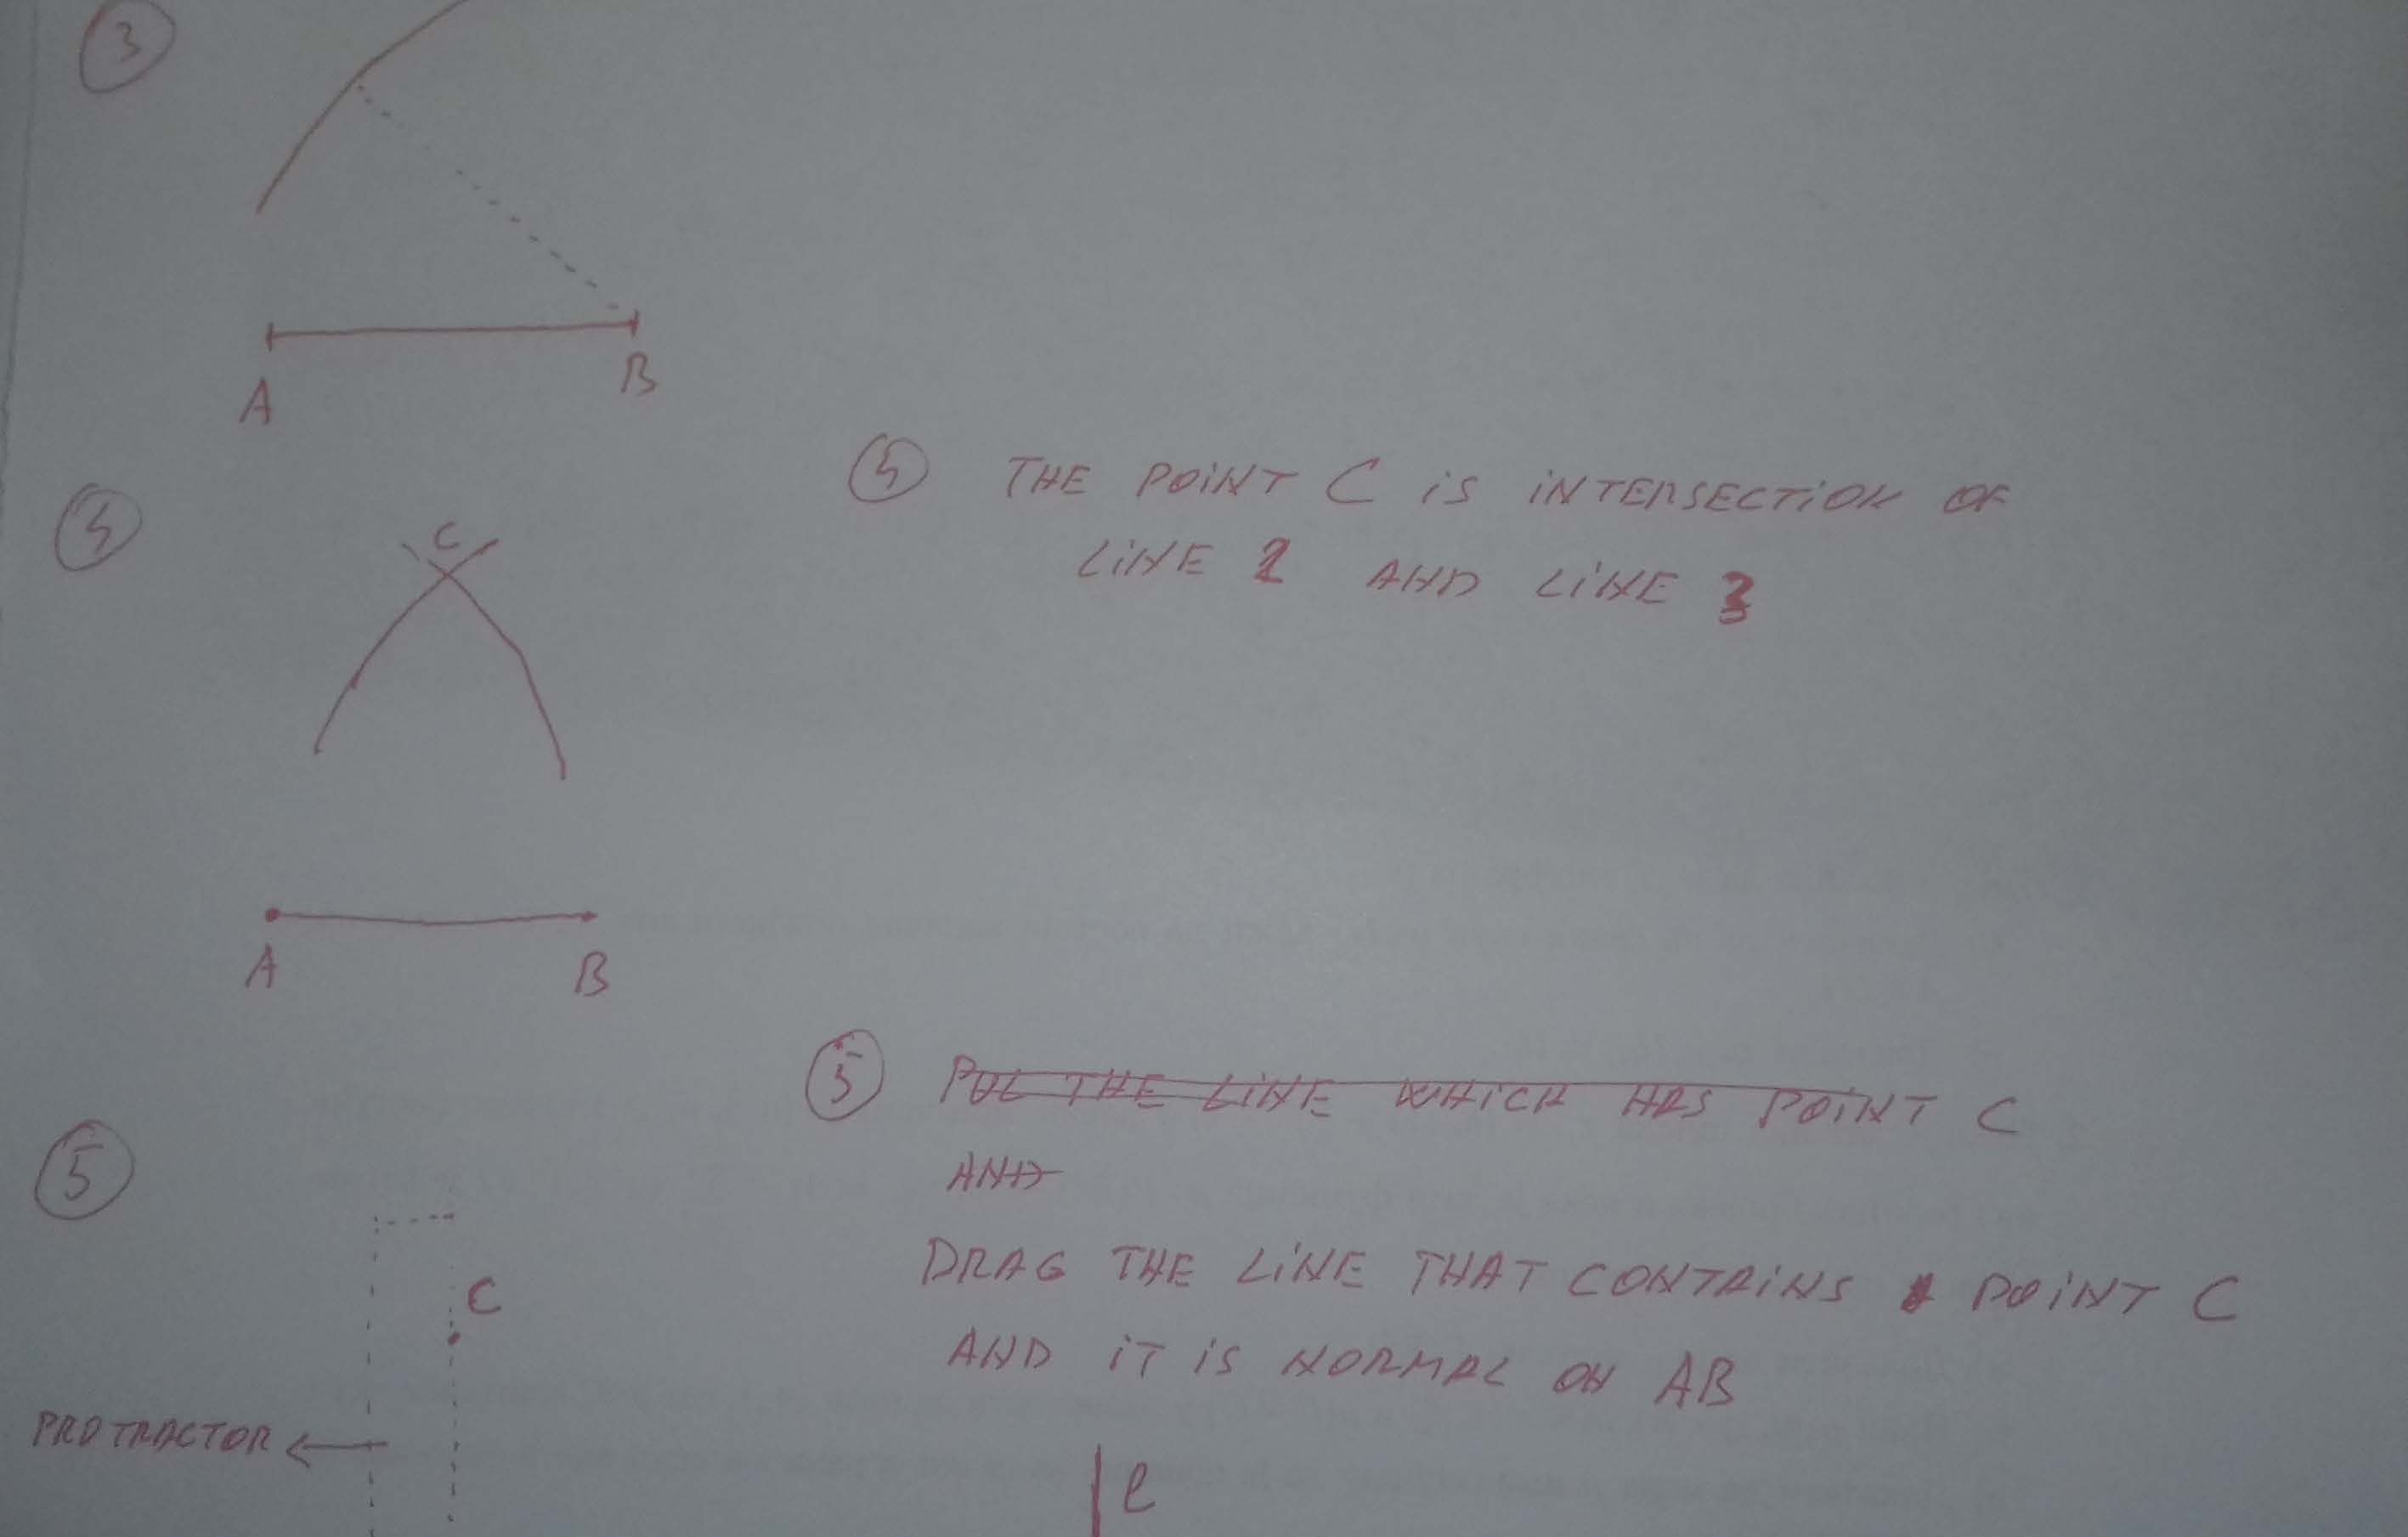 3
A
B
4 THE POINT C iS iNTERSECTiON OF
LiNE 2 AND LiNE 3
4
C
A
B
5 PUL THE LiNE WHiCH HAS POiNT C
AND
DRAG THE LiNE THAT CONTAiNS POiNT C
AND iT iS NORMAL ON AB
5
C
PROTRACTOR
l